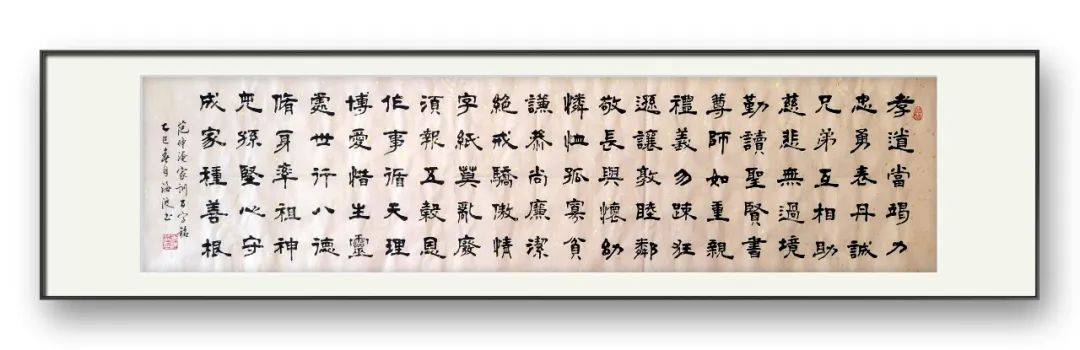 孝道當竭力
忠勇表丹誠
兄弟互相助
慈悲無過境
勤讀聖賢書
尊師如重親
禮義勿疎狂
遜讓敦睦鄰
敬長與懷幼
憐恤孤寡貧
謙恭尚廉潔
絕戒驕傲情
字紙莫亂廢
須報五穀恩
作事循天理
博愛惜生靈
處世行八德
脩身率祖神
兒孫堅心守
成家種善根
范仲淹家訓百字銘
乙巳春月海